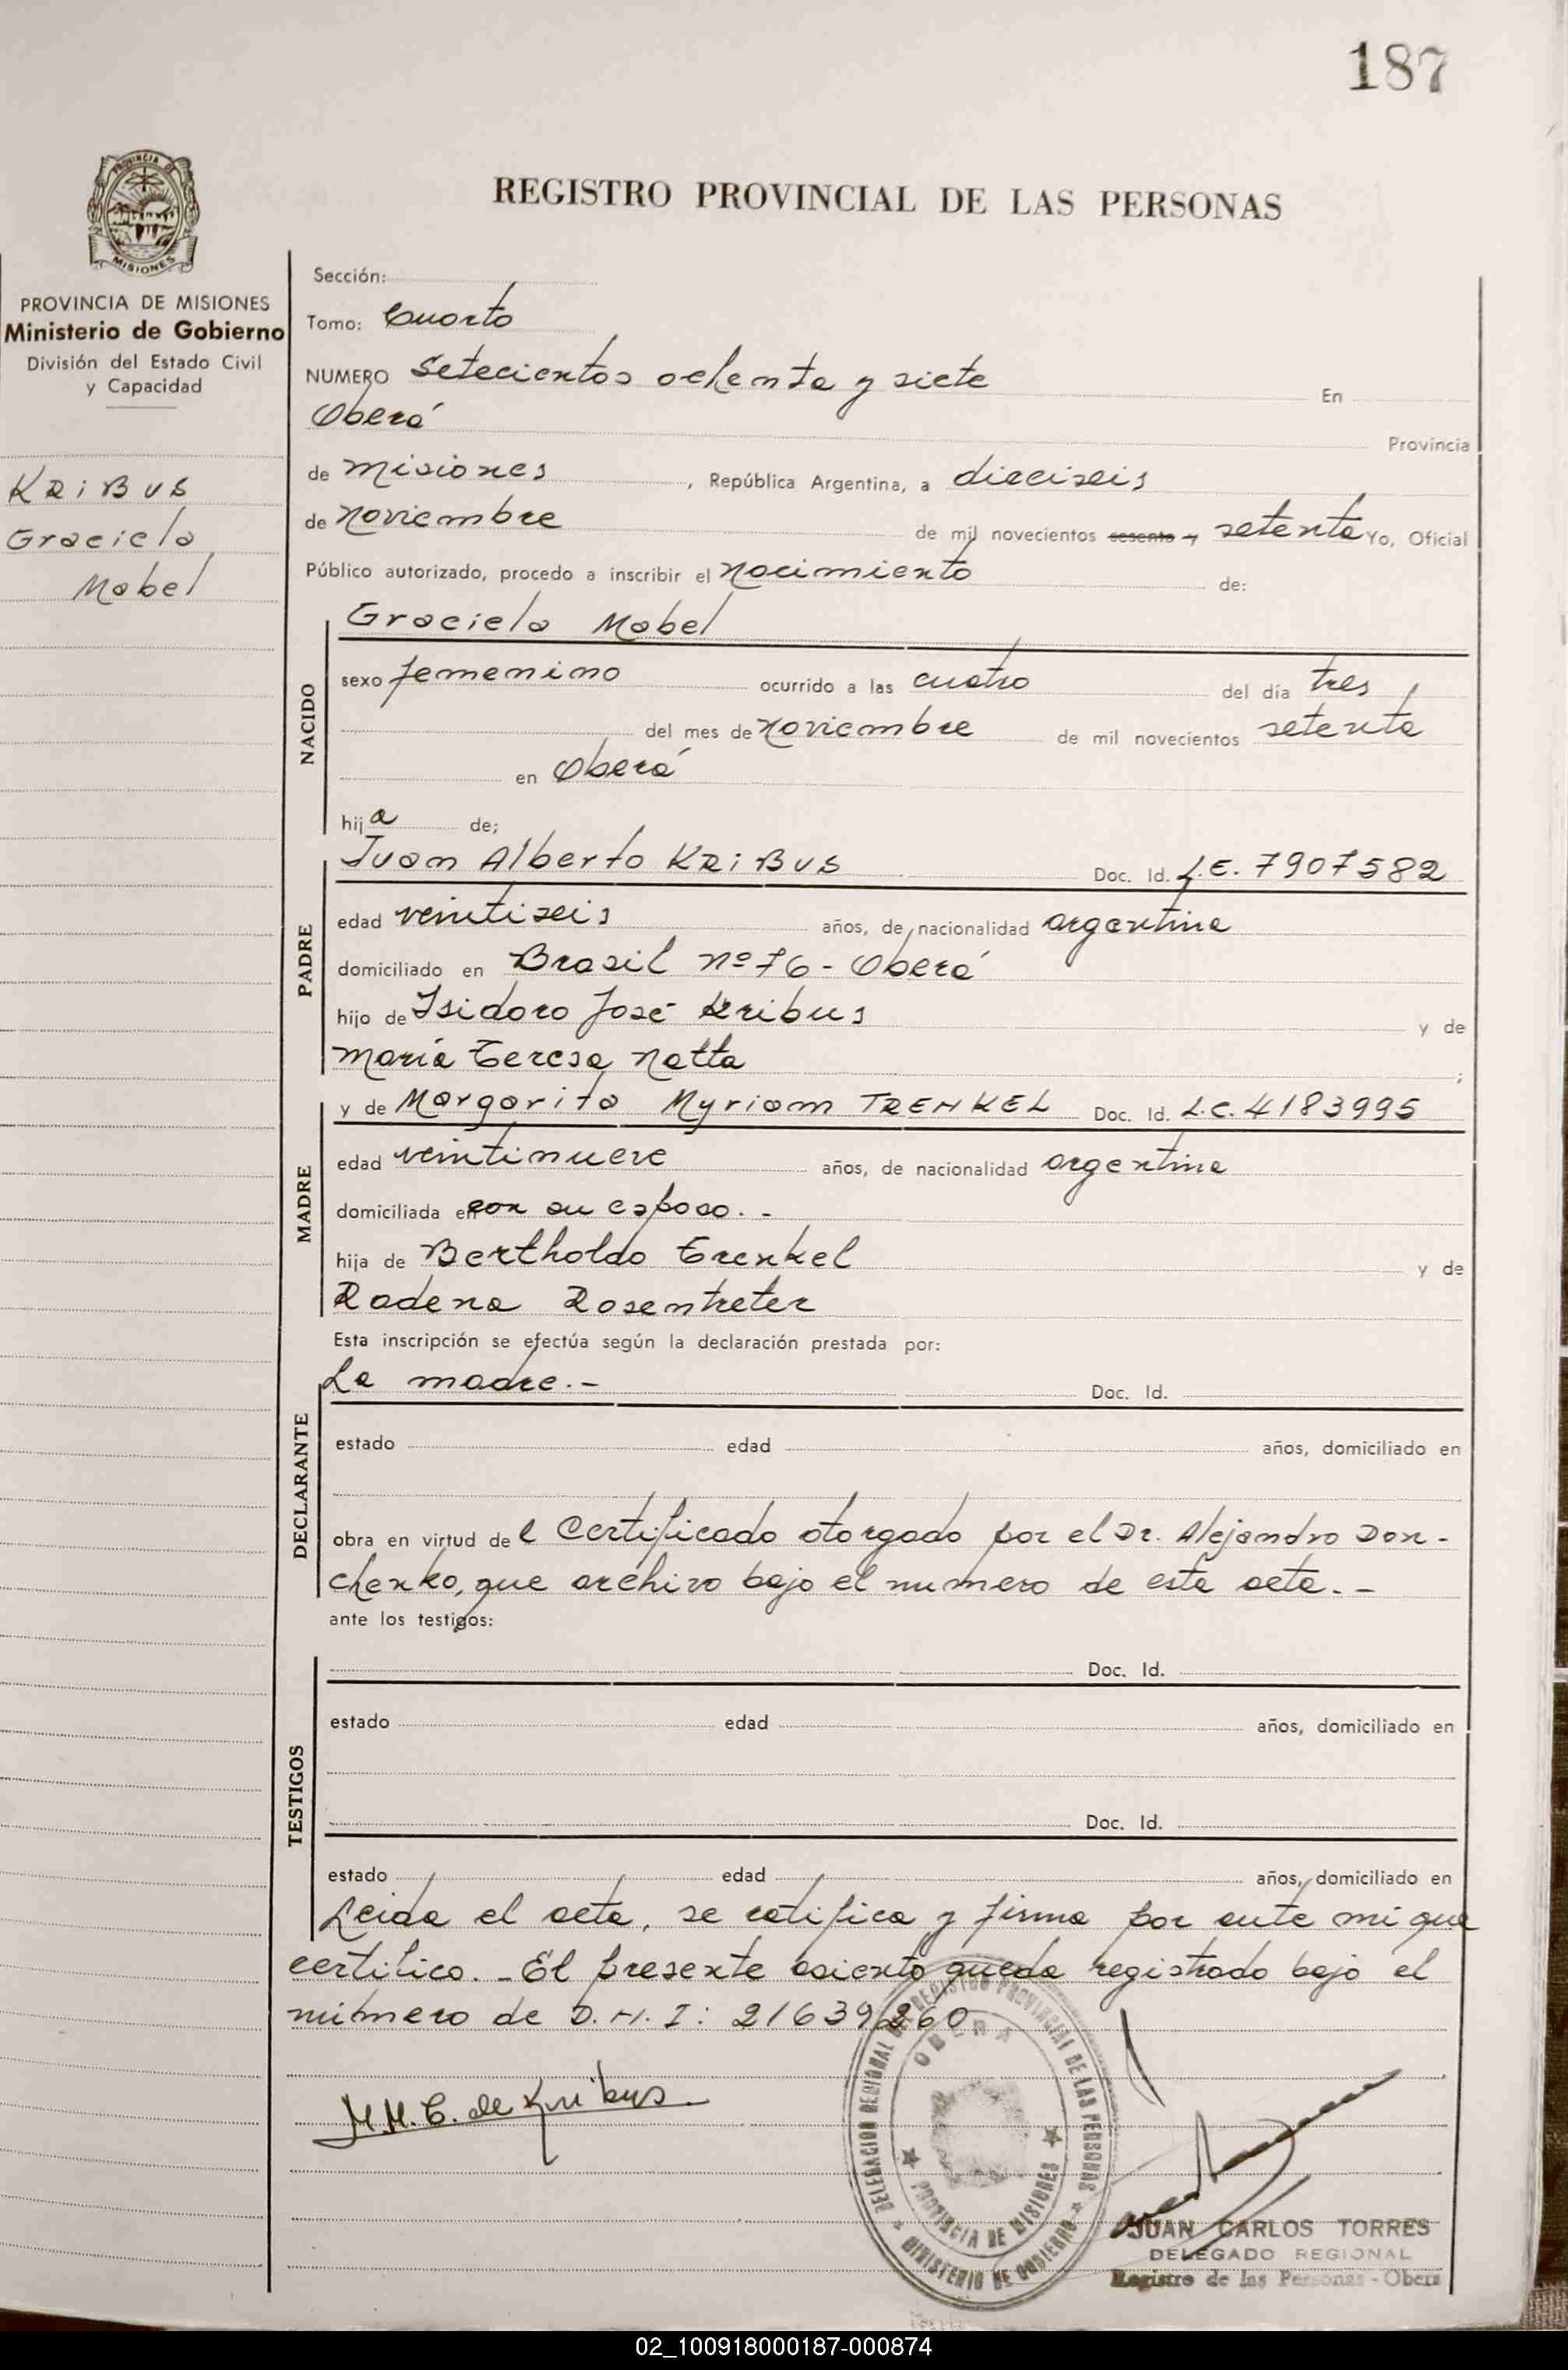 187
PROVINCIA DE
MISIONES
REGISTRO PROVINCIAL DE LAS PERSONAS
PROVINCIA DE MISIONES
Ministerio de Gobierno
División del Estado Civil
y Capacidad
KRiBUS
Graciela
Mabel
Sección:
Tomo: Cuarto
NUMERO Setecientos ochenta y siete En
Oberá Provincia
de Misiones, República Argentina, a dieciseis
de Noviembre de mil novecientos sesenta y setenta Yo, Oficial
Público autorizado, procedo a inscribir el Nacimiento de:
NACIDO
Graciela Mabel
sexo femenino ocurrido a las cuatro del día tres
del mes de Noviembre de mil novecientos setenta
en Oberá
hija de;
PADRE
Juan Alberto KRiBUS Doc. Id. L.E. 7907582
edad veintiseis años, de nacionalidad argentina
domiciliado en Brasil nº 76 - Oberá
hijo de Isidoro José Kribus y de
María Teresa Natta ;
MADRE
y de Margarita Myriam TRENKEL Doc. Id. L.C. 4183995
edad veintinueve años, de nacionalidad argentina
domiciliada en con su esposo. -
hija de Bertholdo Trenkel y de
Radena Rosentreter
Esta inscripción se efectúa según la declaración prestada por:
DECLARANTE
La madre.- Doc. Id.
estado edad años, domiciliado en
obra en virtud del Certificado otorgado por el Dr. Alejandro Don-
chenko, que archivo bajo el numero de esta acta. -
ante los testigos:
TESTIGOS
Doc. Id.
estado edad años, domiciliado en
Doc. Id.
estado edad años, domiciliado en
Leida el acta, se ratifica y firma por ante mi que
certifico. - El presente asiento queda registrado bajo el
número de D.N.I: 21639260
M.M.T. de Kribus
DELEGACION REGIONAL DEL REGISTRO PROVINCIAL DE LAS PERSONAS
OBERA
PROVINCIA DE MISIONES
MINISTERIO DE GOBIERNO
JUAN CARLOS TORRES
DELEGADO REGIONAL
Registro de las Personas - Oberá
02_100918000187-000874